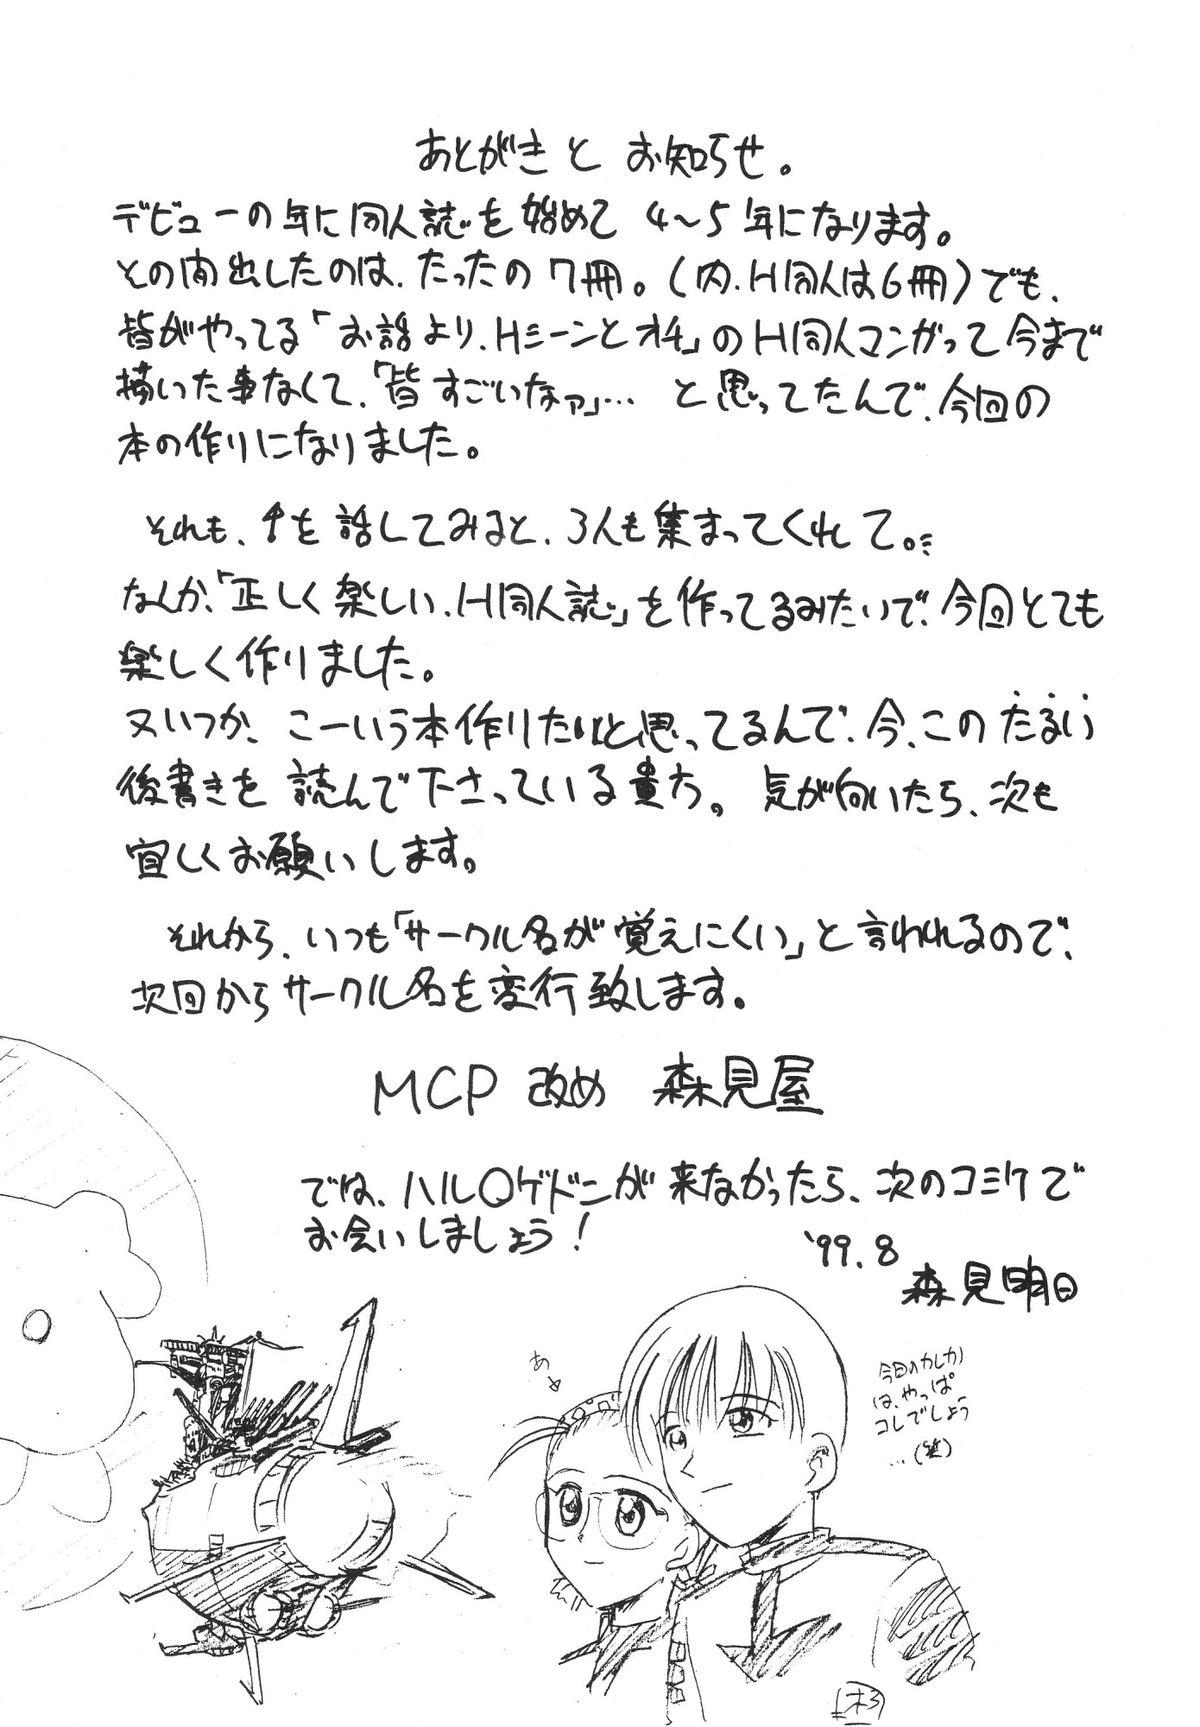 あとがきと お知らせ。
デビューの年に同人誌を始めて 4〜5年になります。
その間出したのは、たったの7冊。(内、H同人は6冊)でも、
皆がやってる「お話より、Hシーンとオチ」のH同人マンガって今まで
描いた事なくて、「皆すごいなァ」… と思ってたんで、今回の
本の作りになりました。
それも、↑を話してみると、3人も集まってくれて。
なんか、「正しく楽しい、H同人誌」を作ってるみたいで、今回とても
楽しく作りました。
又いつか、こーいう本作りたいと思ってるんで、今、このたるい
後書きを読んで下さっている貴方。気が向いたら、次も
宜しくお願いします。
それから、いつも「サークル名が覚えにくい」と言われるので、
次回からサークル名を変行致します。
MCP 改め 森見屋
では、ハル〇ゲドンが来なかったら、次のコミケで
お会いしましょう!
'99.8
森見明日
あ
今回のカしかは、やっぱ
コレでしょう
…(笑)